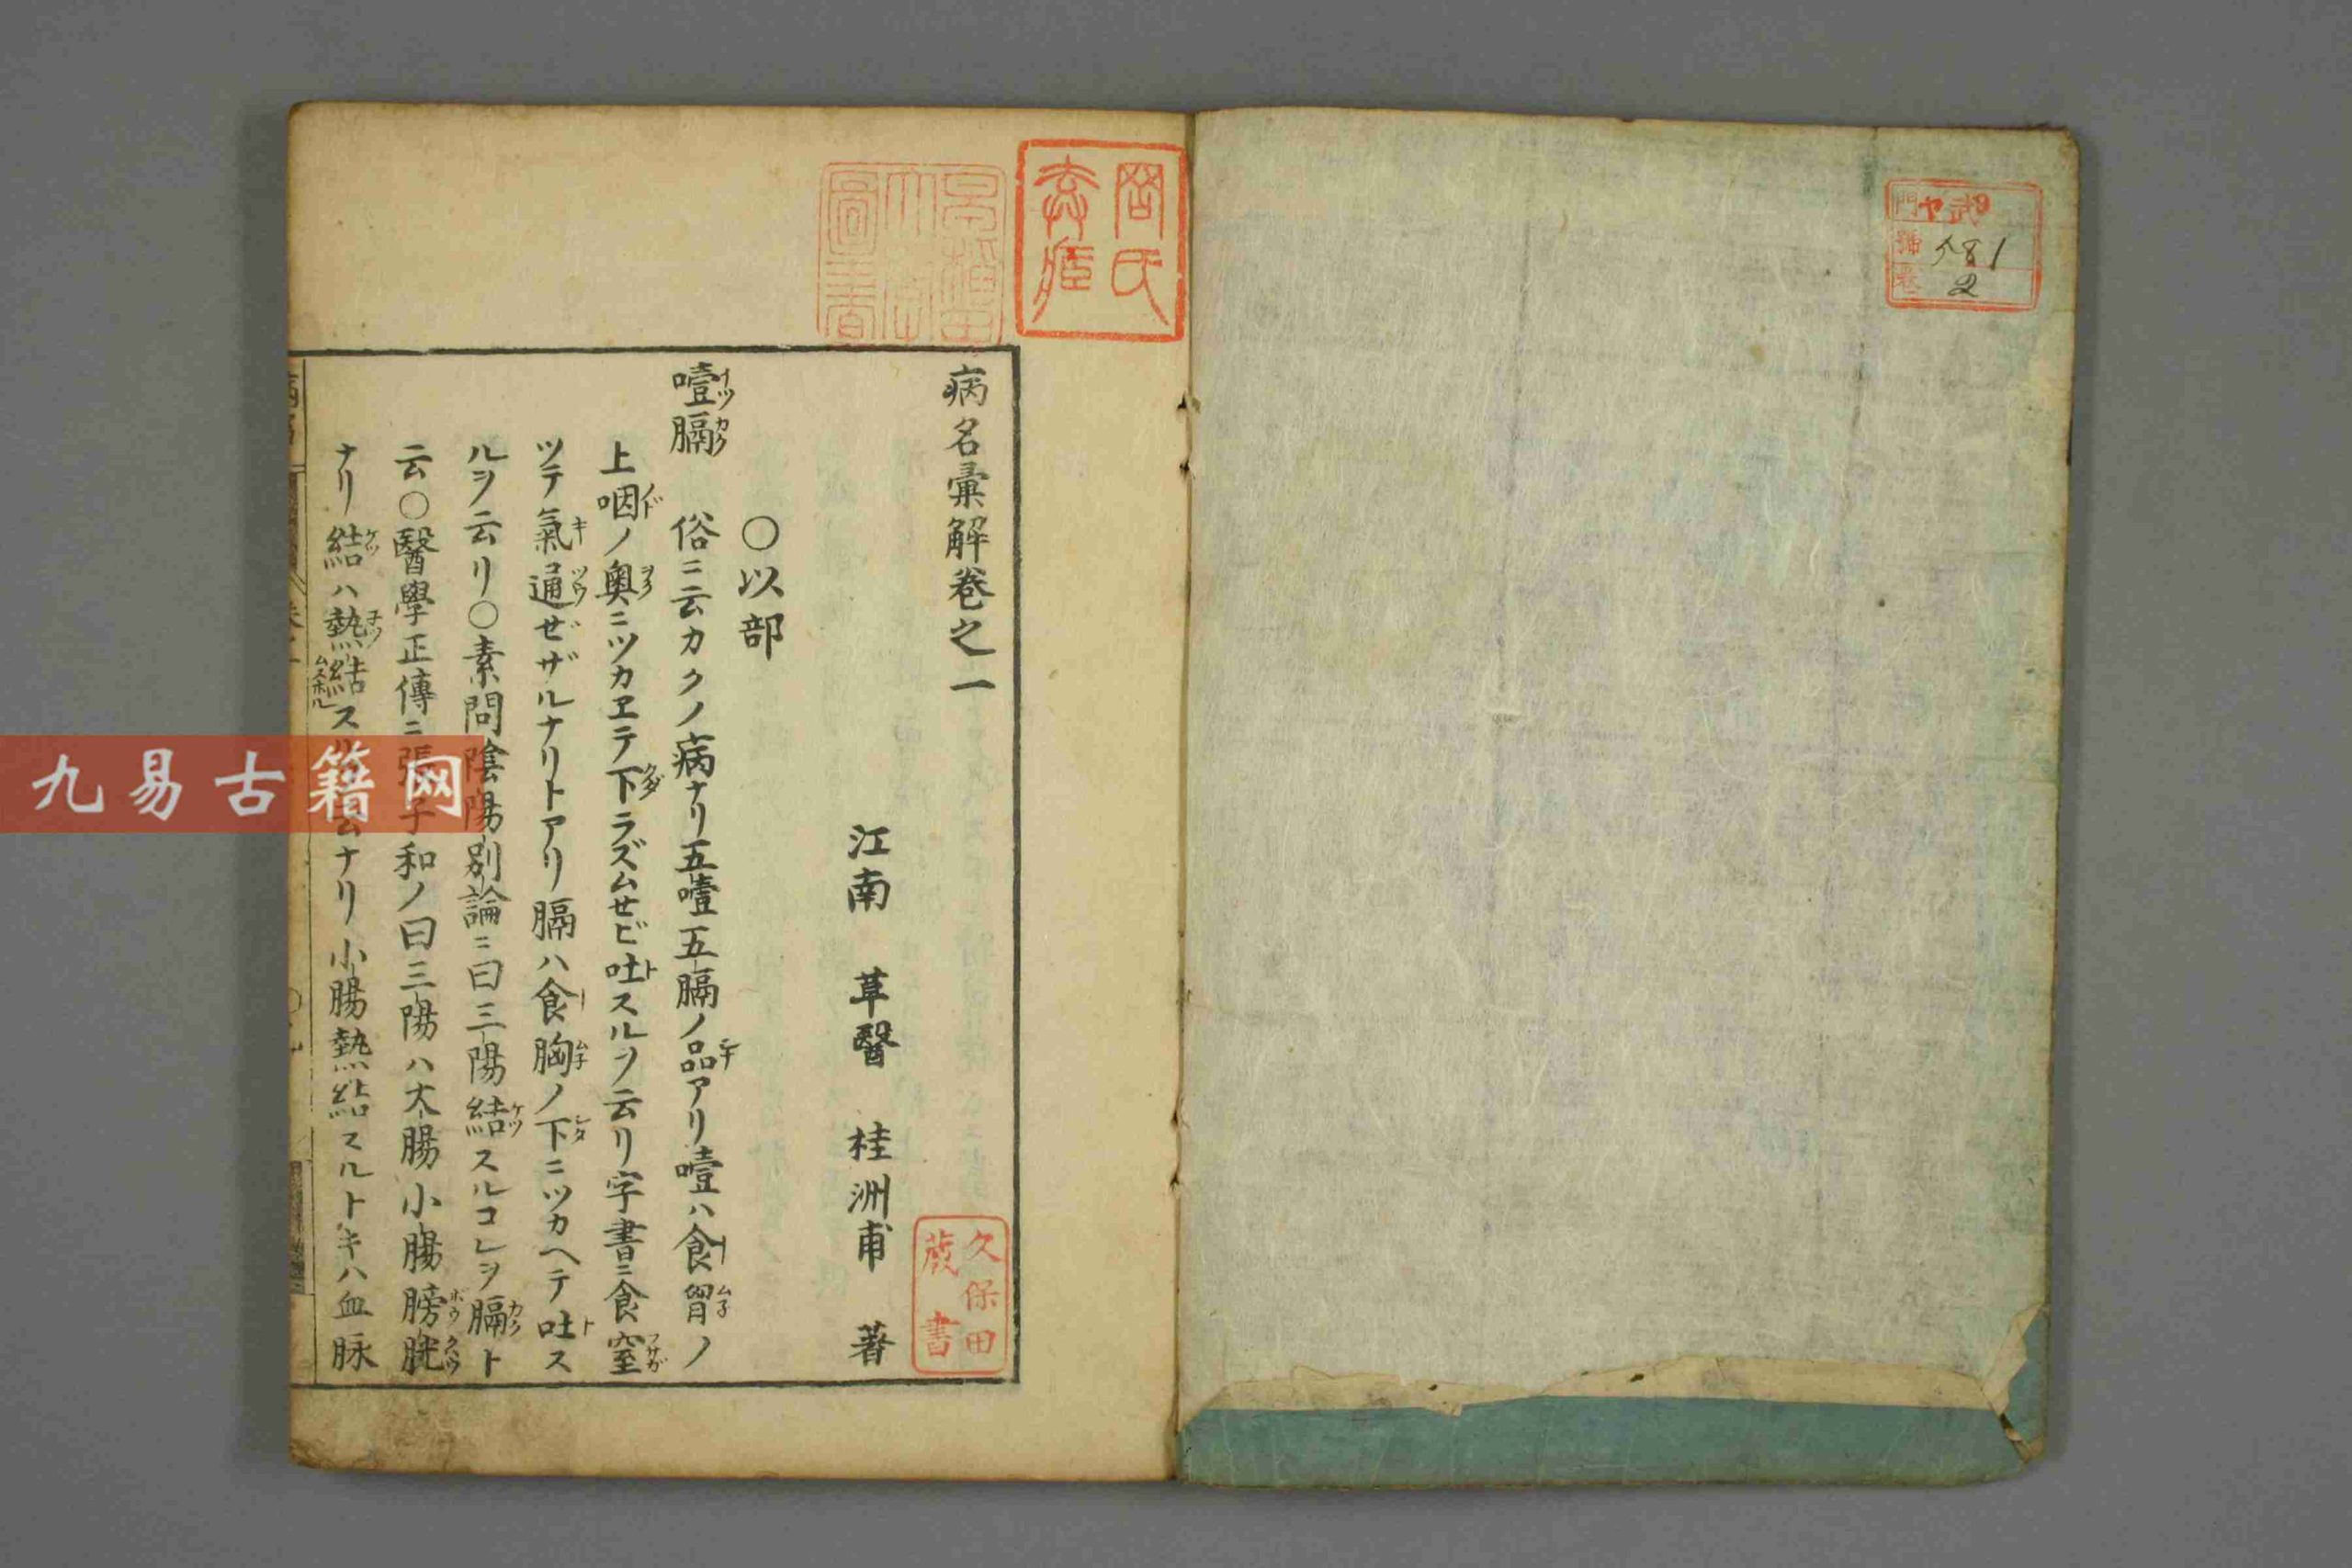 ヤ
武9
門
號
581
2
岡氏
久保田
蔵書
病名彙解卷之一
江南 草醫 桂洲甫 著
〇以部
噎膈 俗ニ云カクノ病ナリ五噎五膈ノ品アリ噎ハ食胷ノ
上咽ノ奥ニツカヱテ下ラズムセビ吐スルヲ云リ字書ニ食窒
ツテ氣通ゼザルナリトアリ膈ハ食胸ノ下ニツカヘテ吐ス
ルヲ云リ〇素問陰陽別論ニ曰三陽結スルコレヲ膈ト
云〇醫學正傳ニ張子和ノ曰三陽ハ大腸小腸膀胱
ナリ結ハ熱結スル云ナリ小腸熱結スルトキハ血脉
九易古籍网